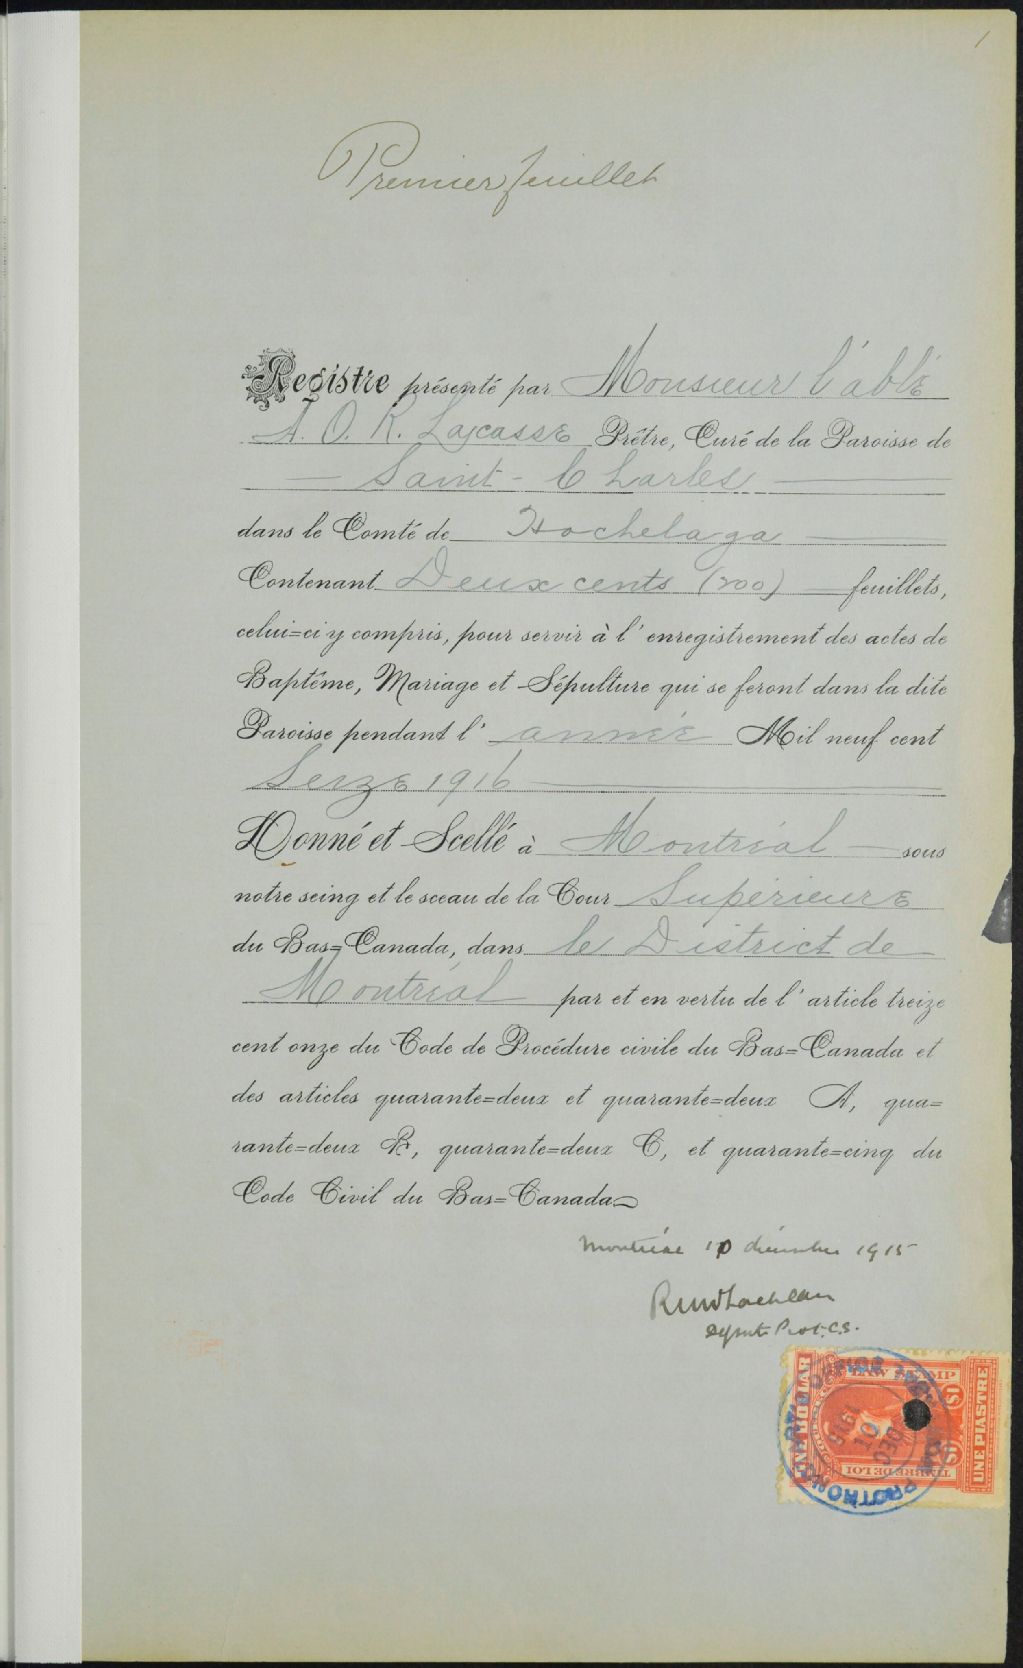 1
Premier feuillet
Registre présenté par Monsieur l'abbé
A. O. R. Lajcasse Prêtre, Curé de la Paroisse de
Saint-Charles
dans le Comté de Hochelaga
Contenant Deux cents (200) feuillets,
celui=ci y compris, pour servir à l'enregistrement des actes de
Baptême, Mariage et Sépulture qui se feront dans la dite
Paroisse pendant l'année Mil neuf cent
Seize 1916
Donné et Scellé à Montréal sous
notre seing et le sceau de la Cour Supérieure
du Bas=Canada, dans le District de
Montréal par et en vertu de l'article treize
cent onze du Code de Procédure civile du Bas=Canada et
des articles quarante=deux et quarante=deux A, qua=
rante=deux B, quarante=deux C, et quarante=cinq du
Code Civil du Bas=Canada
Montréal 10 décembre 1915
Députe Prot. C.S.
LAW STAMP
ONE DOLLAR
$1
$1
UNE PIASTRE
TIMBRE DE LOI
DEC
10
1915